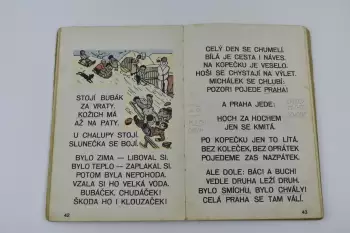 STOJÍ BUBÁK
ZA VRATY,
KOŽICH MÁ
AŽ NA PATY.
U CHALUPY STOJÍ,
SLUNÉČKA SE BOJÍ.
BYLO ZIMA — LIBOVAL SI,
BYLO TEPLO — ZAPLAKAL SI,
POTOM BYLA NEPOHODA,
VZALA SI HO VELKÁ VODA.
BUBÁČEK, CHUDÁČEK!
ŠKODA HO I KLOUZAČEK!
42
CELÝ DEN SE CHUMELÍ,
BÍLÁ JE CESTA I NÁVES.
NA KOPEČKU JE VESELO.
HOŠI SE CHYSTAJÍ NA VÝLET.
MICHÁLEK SE CHLUBÍ:
POZOR! POJEDE PRAHA!
A PRAHA JEDE:
HOCH ZA HOCHEM
JEN SE KMITÁ.
PO KOPEČKU JEN TO LÍTÁ,
BEZ KOLEČEK, BEZ OPRÁTEK
POJEDEME ZAS NAZPÁTEK.
ALE DOLE: BÁCI A BUCH!
VEDLE DRUHA LEŽÍ DRUH.
BYLO SMÍCHU, BYLO CHVÁLY!
CELÁ PRAHA SE TAM VÁLÍ.
43